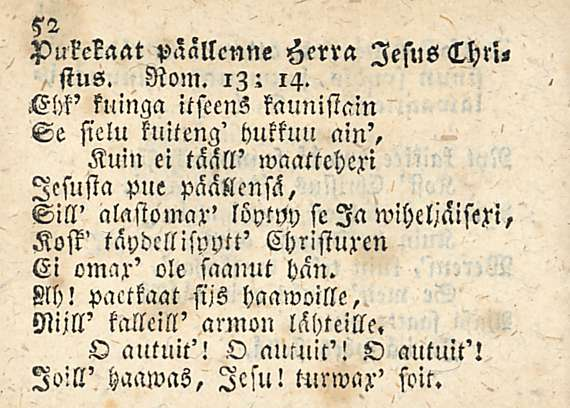 52
Pukekaat päällenne Herra Jesus Chri-
stus. Rom. 13: 14.
Ehk' kuinga itseens kaunistain
Se sielu kuiteng' hukkuu ain',
Kuin ei tääll' waattehexi
Jesusta pue päällensä,
Sill' alastomax' löytyy se Ja wiheljäisexi,
Kosk' täydellisyytt' Christuxen
Ei omax' ole saanut hän.
Ah! paetkaat sijs haawoille,
Nijll' kalleill' armon lähteille.
O autuit'! O autuit'! O autuit'!
Joill' haawas, Jesu! turwax' soit.